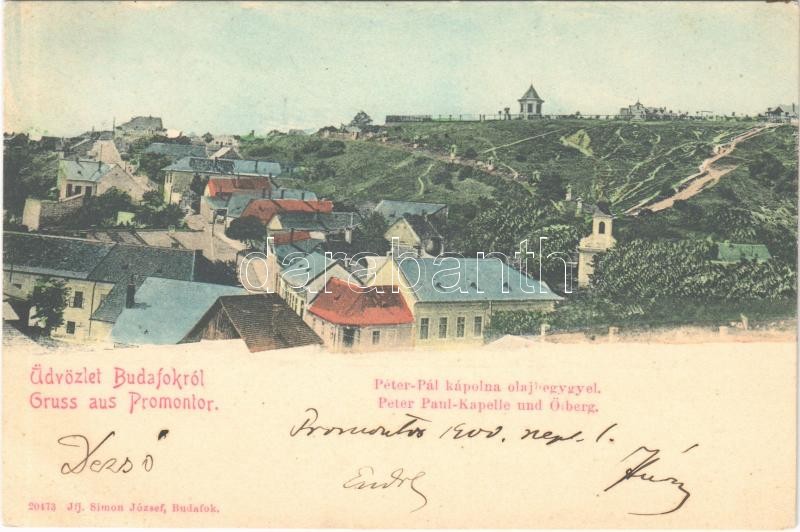 darabanth
Üdvözlet Budafokról
Gruss aus Promontor.
Péter-Pál kápolna olajhegygyel.
Peter Paul-Kapelle und Ölberg.
Promontor 1900. sept. 1.
Dezső
Endre
20473 Ifj. Simon József, Budafok.